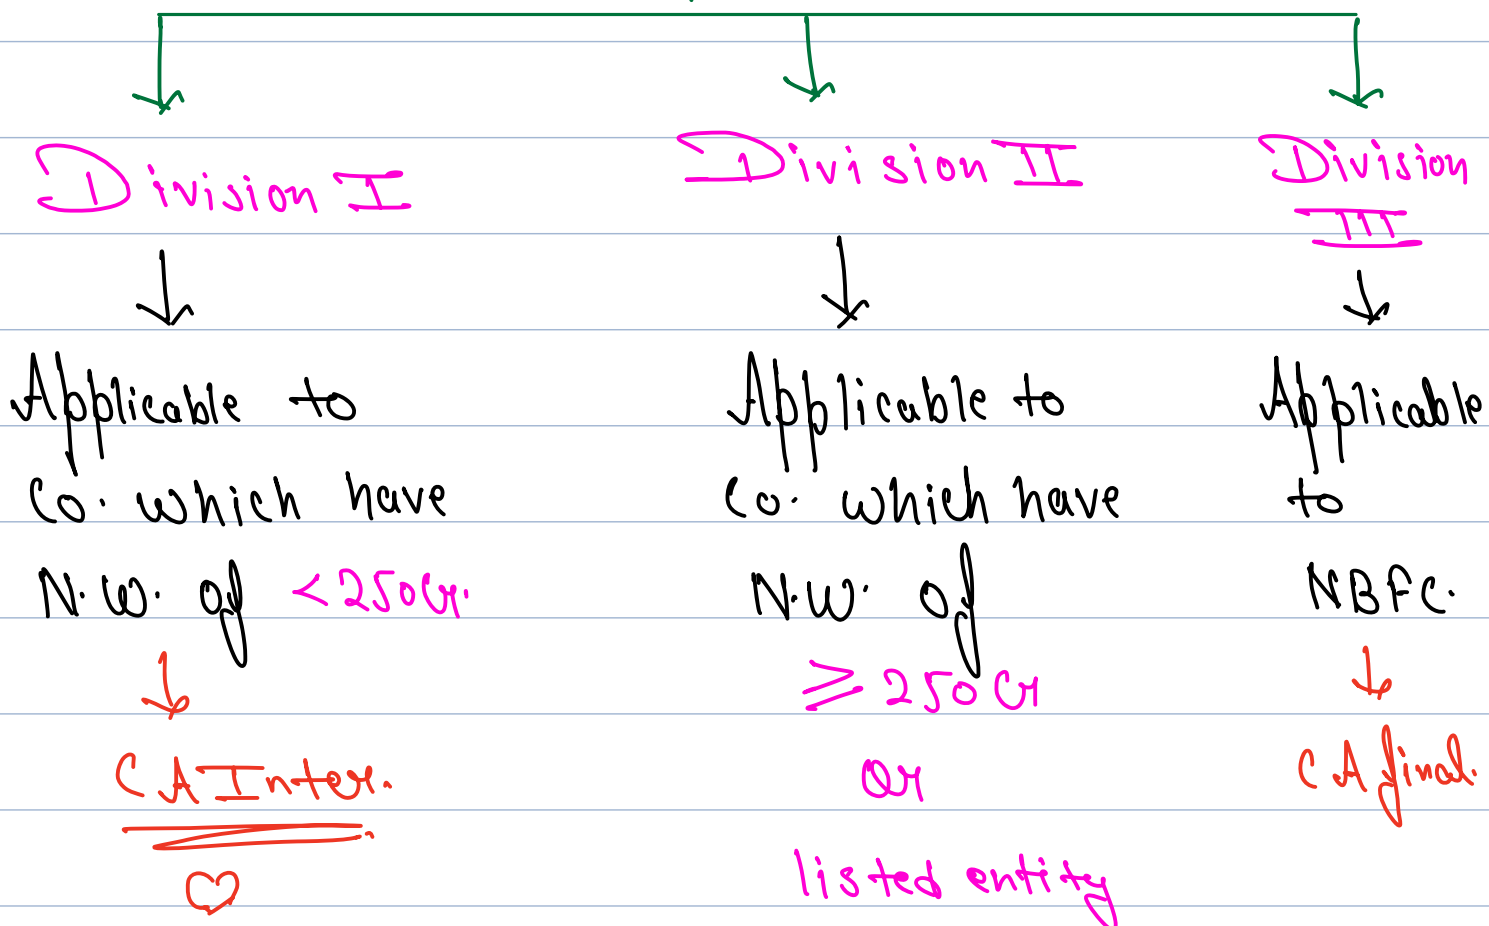 Division I
↓
Applicable to
Co. which have
N.W. of <250Cr.
↓
CA Inter.
♡
Division II
↓
Applicable to
Co. which have
N.W. of
≥ 250 Cr
Or
listed entity
Division
III
↓
Applicable
to
NBFC.
↓
CA final.